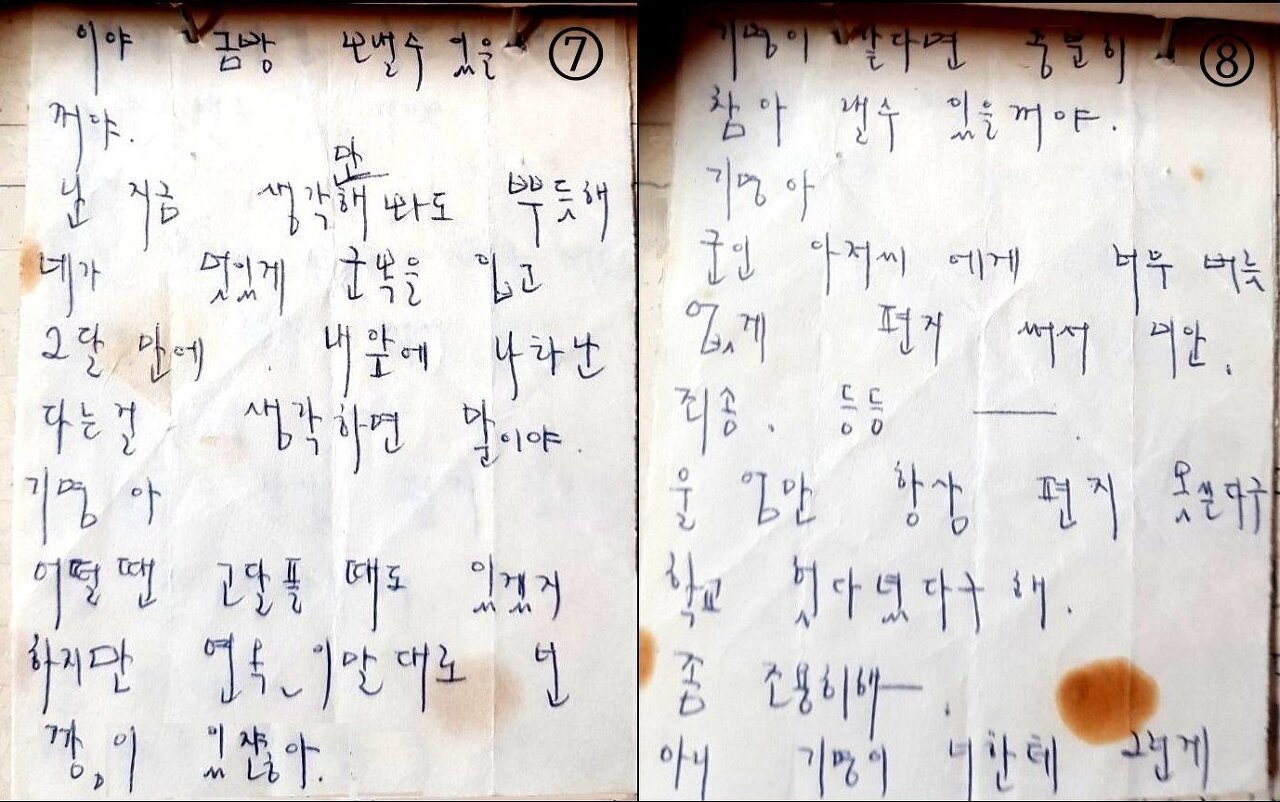 ⑦
이야 금방 보낼수 있을
꺼야.
난 지금 생각만해 봐도 뿌듯해
네가 멋있게 군복을 입고
2달 만에 내 앞에 나타난
다는걸 생각하면 말이야.
기명아
어떨땐 고달플 때도 있겠지
하지만 연옥 이말대로 넌
깡이 있잖아.
⑧
기명이 말다면 충분히
참아 낼수 있을꺼야.
기명아
군인 아저씨 에게 너무 버릇
없게 편지 써서 미안.
죄송. 등등 ——.
울 엄만 항상 편지 못쓴다구
학교 헛다녔다구 해.
좀 조용히해—.
아니 기명이 너한테 그런게